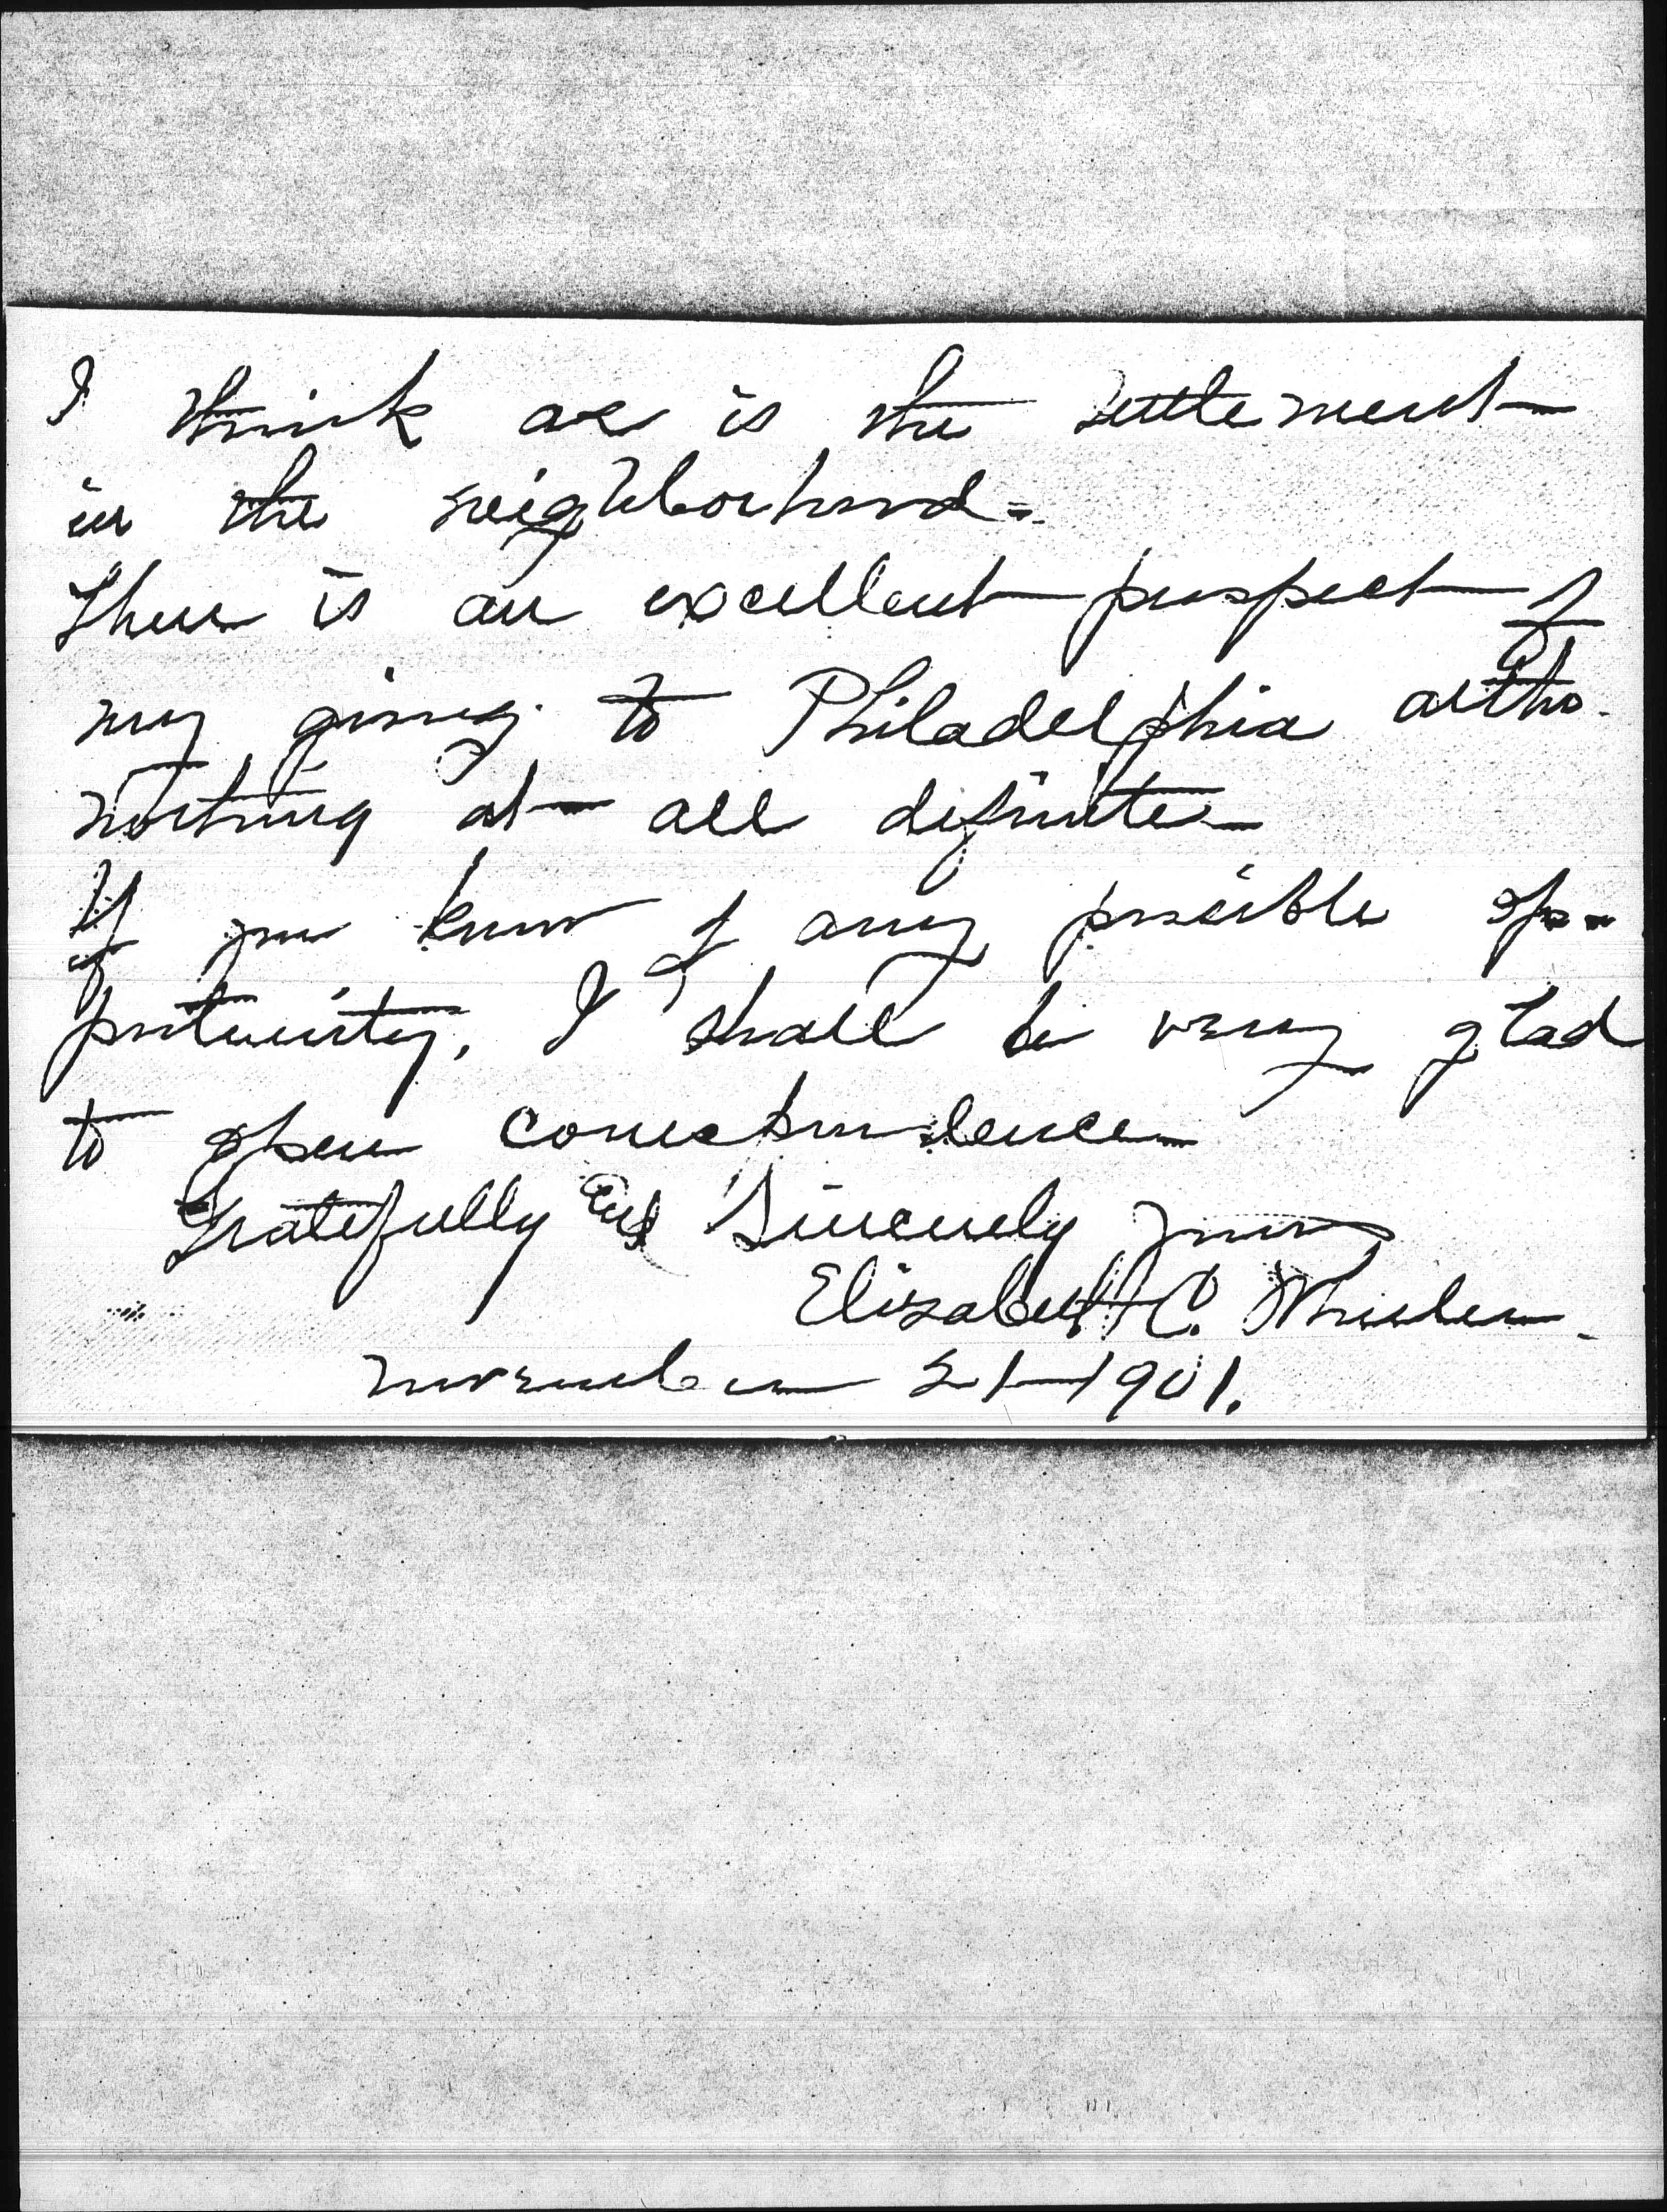 I think as is the settlement
in the neighborhood =
There is an excellent prospect of
my going to Philadelphia altho.
nothing at all definite
If you know of any possible op-
portunity, I shall be very glad
to open correspondence
Gratefully and Sincerely yours
Elizabeth C.
November 21 - 1901.